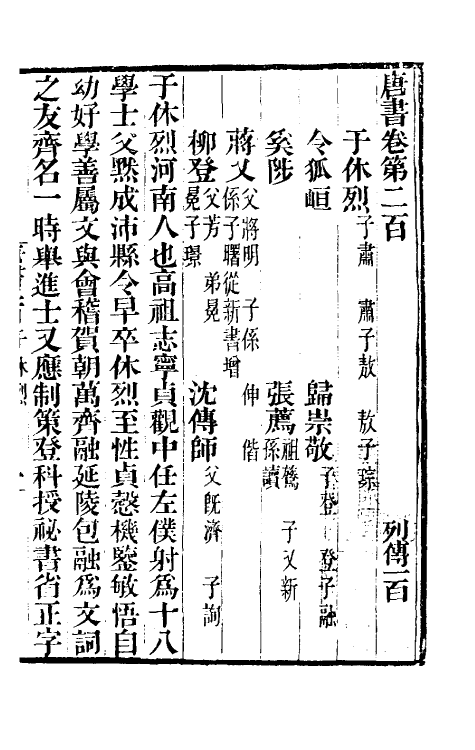 唐書卷第二百 列傳一百
于休烈 子肅 肅子敖 敖子琮
令狐峘 歸崇敬 子登 登子融
奚陟 張薦 祖鷟 孫讀 子又新
蔣乂 父將明 子係 係子曙從新書增 伸 偕
柳登 父芳 弟冕 冕子璟 沈傳師 父既濟 子詢
于休烈河南人也高祖志寧貞觀中任左僕射爲十八
學士父黙成沛縣令早卒休烈至性貞慤機鑒敏悟自
幼好學善屬文與會稽賀朝萬齊融延陵包融爲文詞
之友齊名一時舉進士又應制策登科授祕書省正字